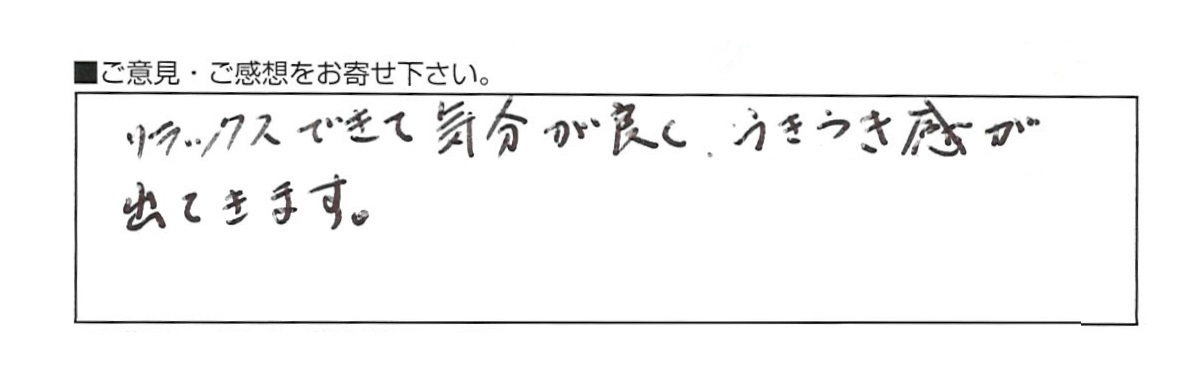 ■ご意見・ご感想をお寄せ下さい。
リラックスできて気分が良く、うきうき感が
出てきます。